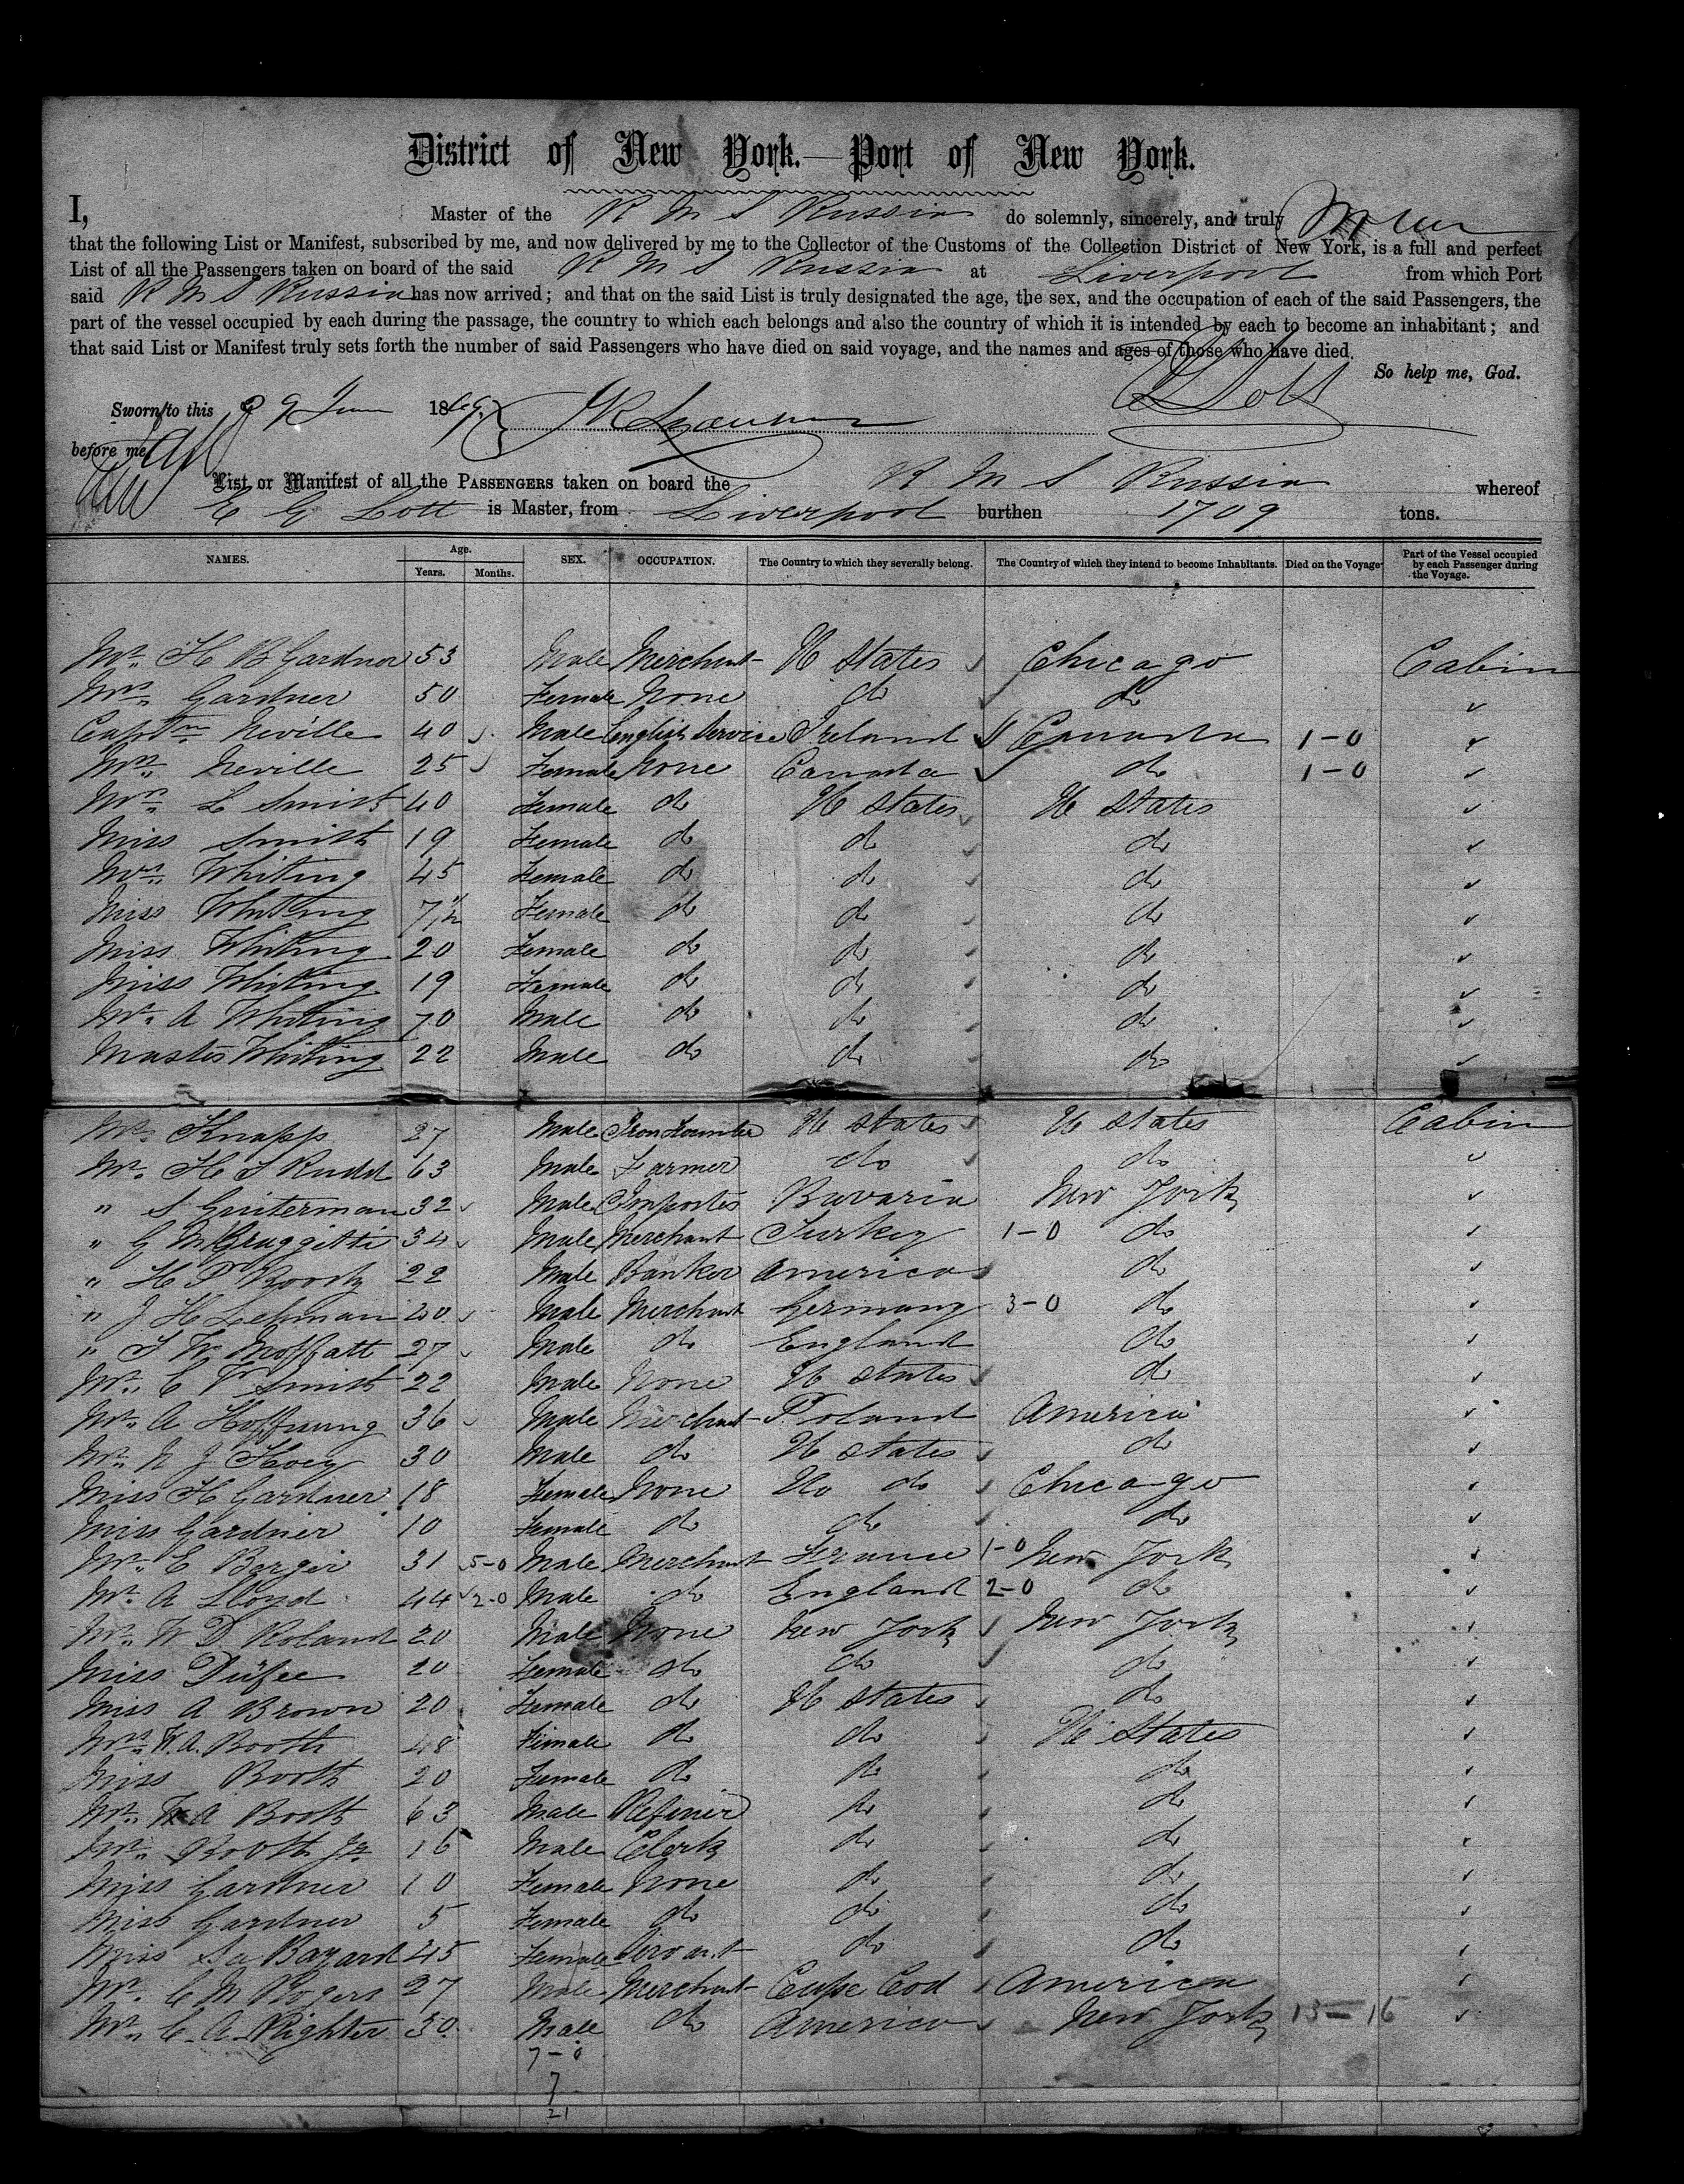 District of New York.—Port of New York.
I, Master of the R M S Russia do solemnly, sincerely, and truly
that the following List or Manifest, subscribed by me, and now delivered by me to the Collector of the Customs of the Collection District of New York, is a full and perfect
List of all the Passengers taken on board of the said R M S Russia at Liverpool from which Port
said R M S Russia has now arrived; and that on the said List is truly designated the age, the sex, and the occupation of each of the said Passengers, the
part of the vessel occupied by each during the passage, the country to which each belongs and also the country of which it is intended by each to become an inhabitant; and
that said List or Manifest truly sets forth the number of said Passengers who have died on said voyage, and the names and ages of those who have died.
So help me, God.
Sworn to this 29 June 1869
before me
List or Manifest of all the PASSENGERS taken on board the R M S Russia whereof
E G Lott is Master, from Liverpool burthen 1709 tons.
NAMES. Age. Years. Months. SEX. OCCUPATION. The Country to which they severally belong. The Country of which they intend to become Inhabitants. Died on the Voyage Part of the Vessel occupied by each Passenger during the Voyage.
Mr. H B Gardner 53 Male Merchant U States Chicago Cabin
Mrs. Gardner 50 Female None do do
Captn Neville 40 Male English Service Ireland Canada 1-0
Mrs. Neville 25 Female None Canada do 1-0
Mrs. L Smith 40 Female do U States U States
Miss Smith 19 Female do do do
Mrs. Whiting 45 Female do do do
Miss Whiting 7½ Female do do do
Miss Whiting 20 Female do do do
Miss Whiting 19 Female do do do
Mr. A Whiting 70 Male do do do
Master Whiting 22 Male do do do
Mr. Knapp 27 Male Iron Founder U States U States Cabin
Mr. H S Rudd 63 Male Farmer do do
" S Guiterman 32 Male Importer Bavaria New York
" G M 34 Male Merchant Turkey 1-0 do
" H P Boody 22 Male Banker America do
" J H Lehman 20 Male Merchant Germany 3-0 do
" T W Moffatt 27 Male do England do
Mr. C V Smith 22 Male None U States do
Mr. A Hoffnung 36 Male Merchant Poland America
Mr. N J Hoey 30 Male do U States do
Miss H Gardner 18 Female None do Chicago
Miss Gardner 10 Female do do do
Mr. E Berger 31 5-0 Male Merchant France 1-0 New York
Mr. A Lloyd 44 2-0 Male do England 2-0 do
Mr. W D Roland 20 Male None New York New York
Miss Dufee 20 Female do do do
Miss A Brown 20 Female do U States do
Mrs. W.A. Booth 48 Female do do U States
Miss Booth 20 Female do do do
Mr. W A Booth 63 Male Refiner do do
Mr. Booth Jr 16 Male Clerk do do
Miss Gardner 10 Female None do do
Miss Gardner 5 Female do do do
Miss Bayard 45 Female Servant do do
Mr. C M Rogers 27 Male Merchant Cape Cod America
Mr. C A Righter 30 Male do America New York 13-16
7-0
7
21